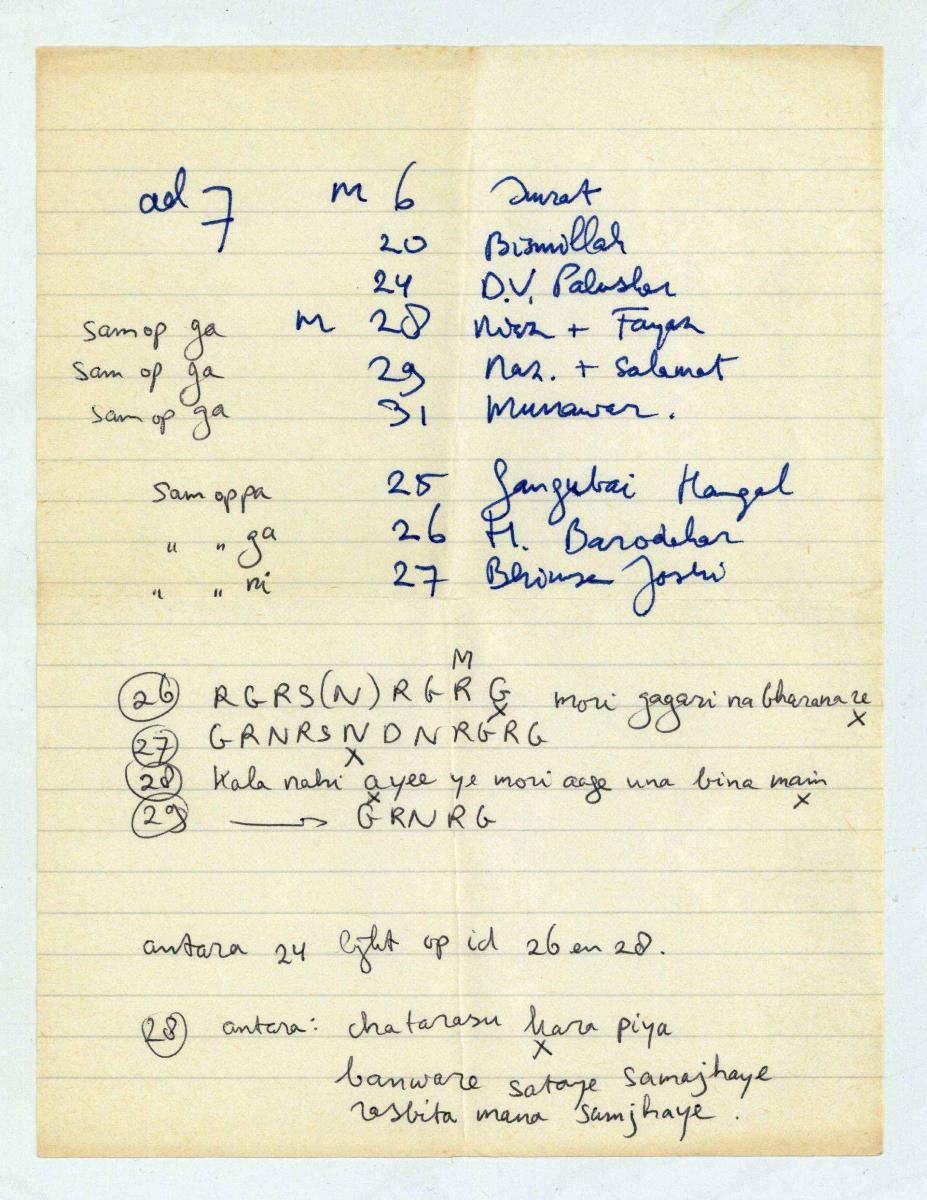 ad 7 M 6 Imrat
20 Bismillah
24 D.V. Paluskar
sam op ga M 28 Niaz + Fayaz
sam op ga 29 Naz. + Salamat
sam op ga 31 Munawar.
sam op pa 25 Gangubai Hangal
" " ga 26 H. Barodekar
" " ni 27 Bhimsen Joshi
M
26 RGRS(N) RGRG mori gagari na bharana re
x x
27 GRNRSNDNRGRG
x
28 Kala nahi ayee ye mori aage una bina main
x x
29 → GRNRG
antara 24 lijkt op id 26 en 28.
28 antara: chatarasu kara piya
x
banware sataye samajhaye
rasbita mana samjhaye.